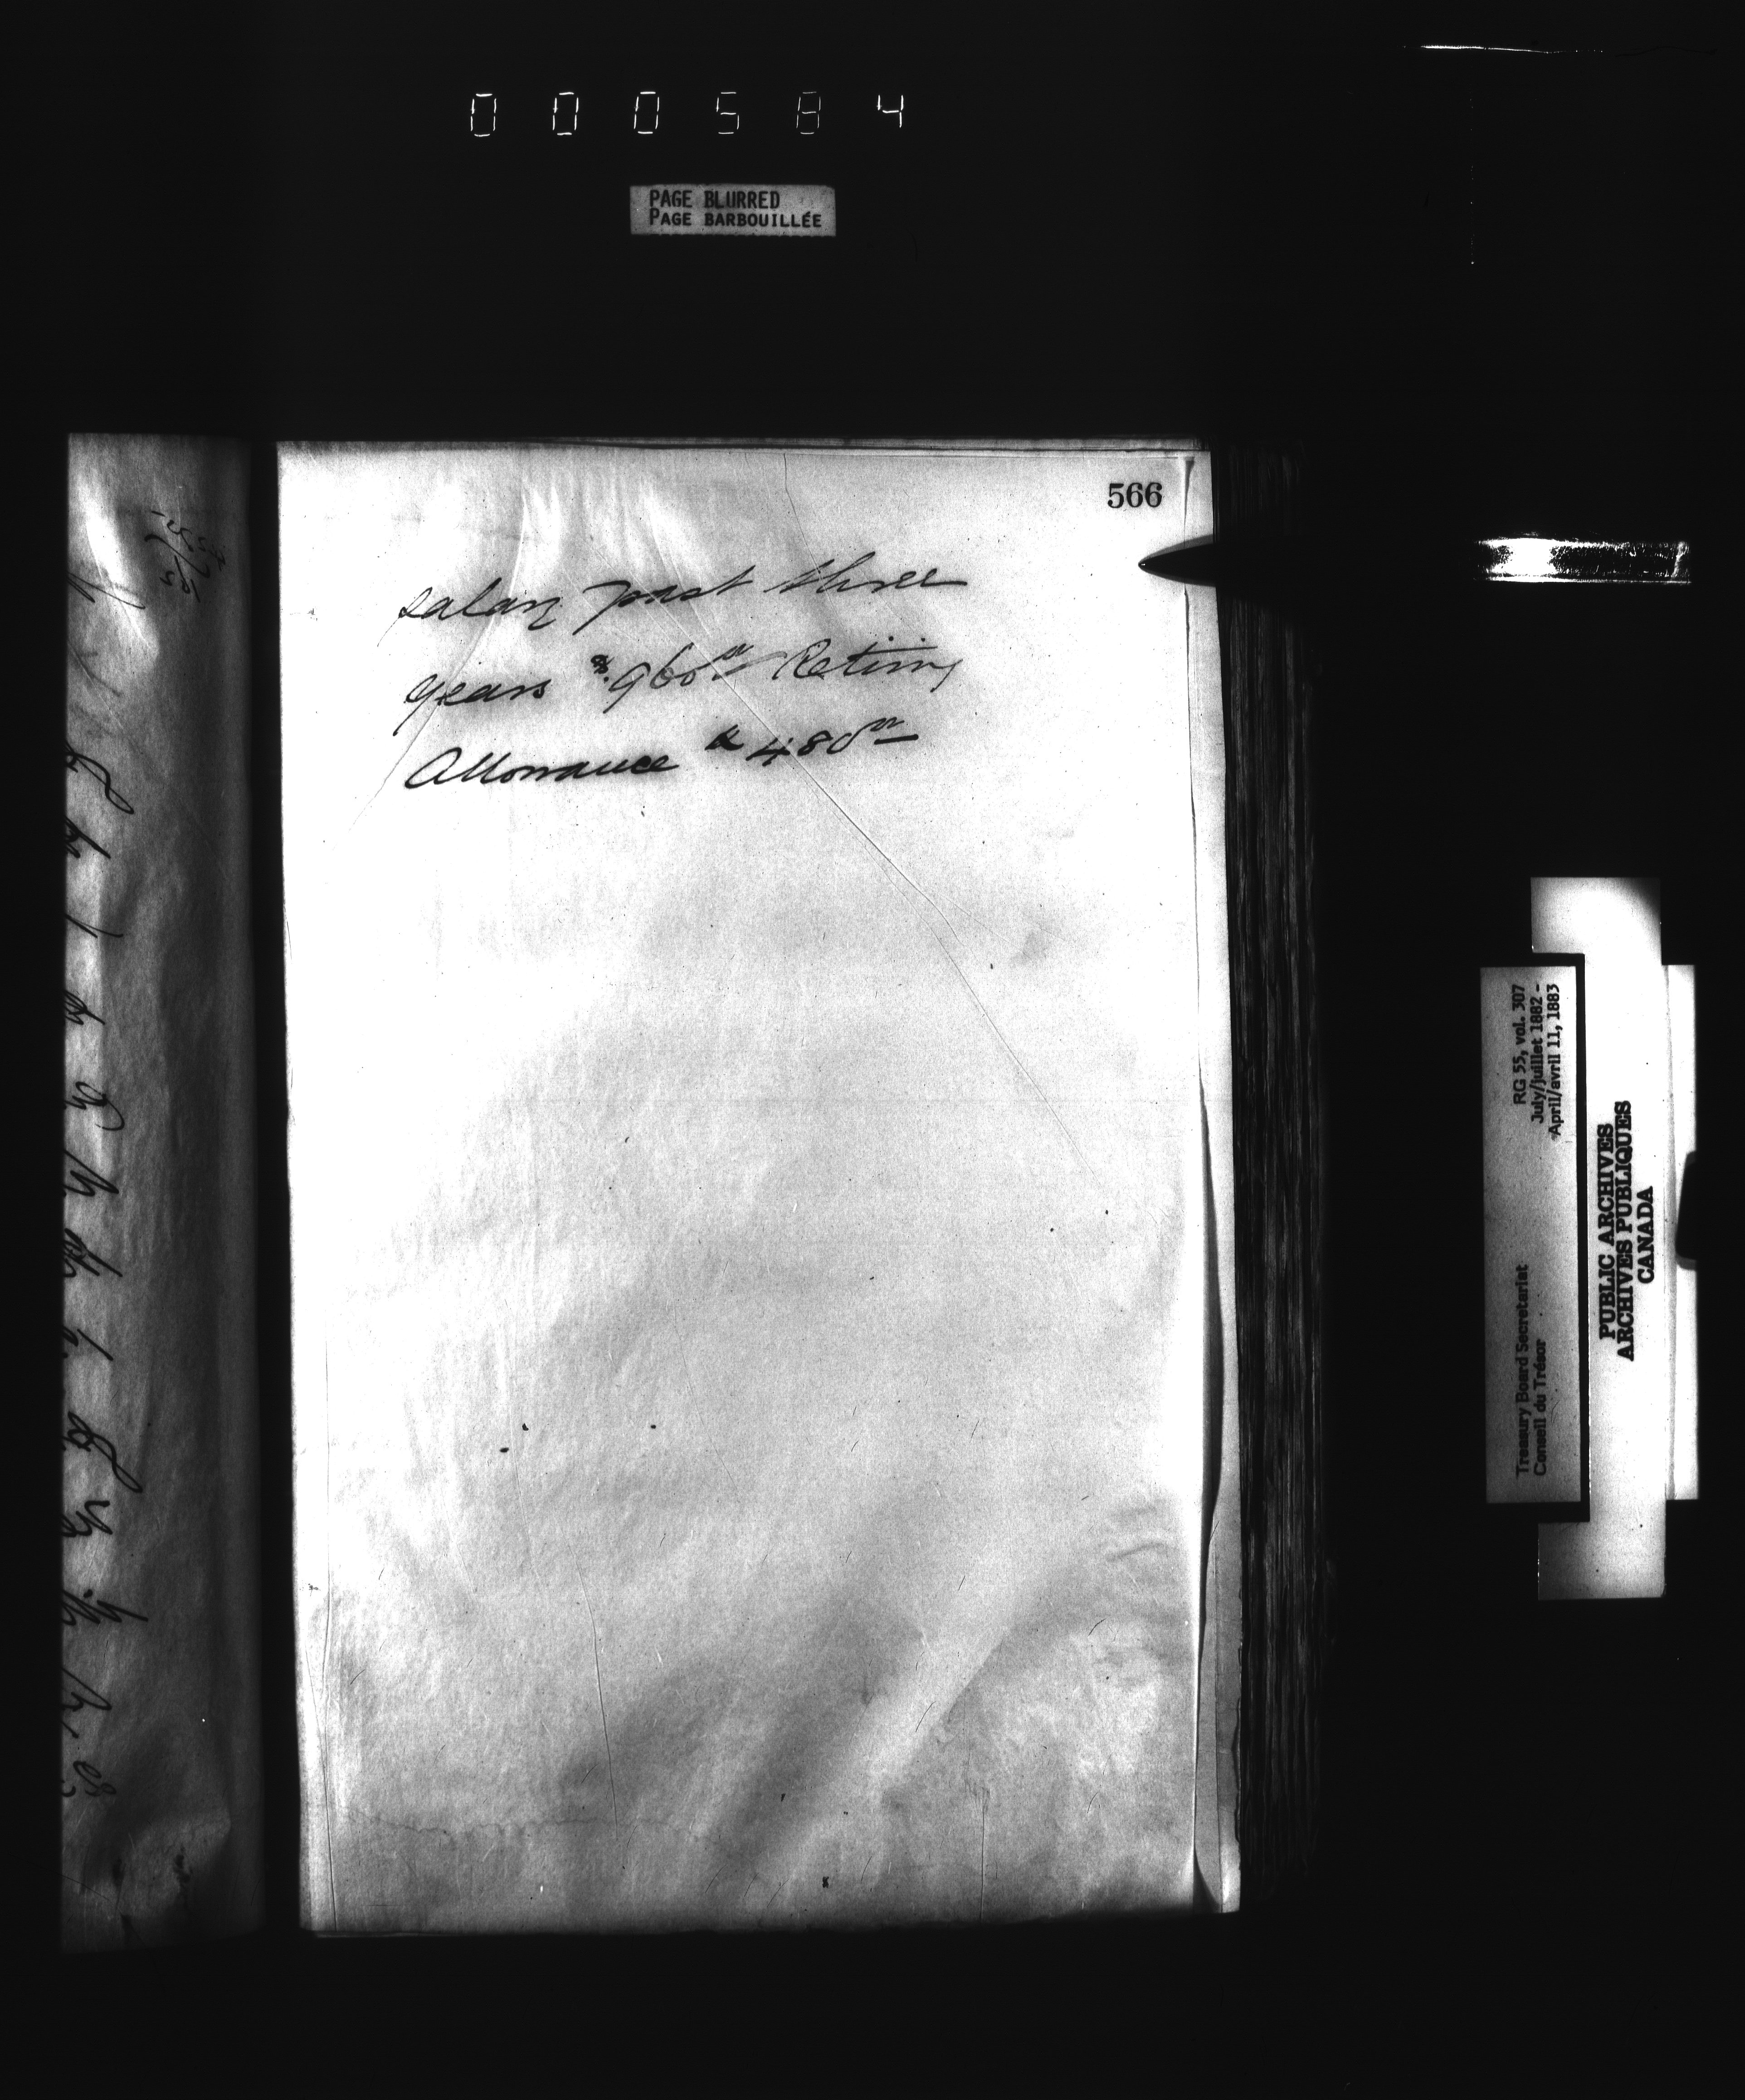 000584
PAGE BLURRED
PAGE BARBOUILLÉE
566
salary past three
years $960 00 Retiring
Allowance $480 00
RG 55, vol. 307
July/juillet 1882 -
April/avril 11, 1883
Treasury Board Secretariat
Conseil du Trésor
PUBLIC ARCHIVES
ARCHIVES PUBLIQUES
CANADA